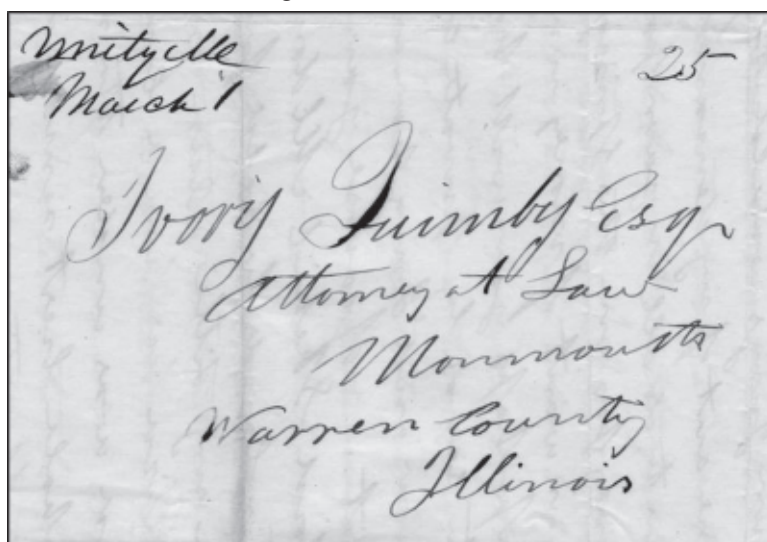 Unity Me
March 1
25
Ivory Quimby Esq
Attorney at Law
Monmouth
Warren County
Illinois